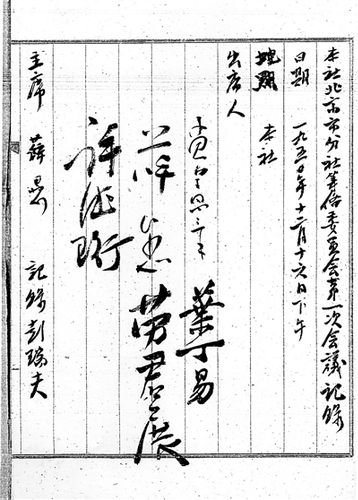 本社北京市分社筹备委员会第一次会议记录
日期 一九五〇年十二月十六日下午
地点 本社
出席人
葉丁易
薛愚 劳君展
许德珩
主席 薛愚 记录 彭瑞夫